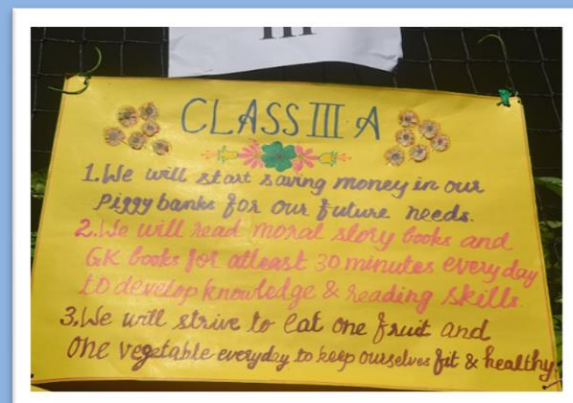 III
CLASS III A
1. We will start saving money in our
Piggy banks for our future needs.
2. We will read moral story books and
GK books for atleast 30 minutes everyday
to develop knowledge & reading skills.
3. We will strive to eat one fruit and
one vegetable everyday to keep ourselves fit & healthy.